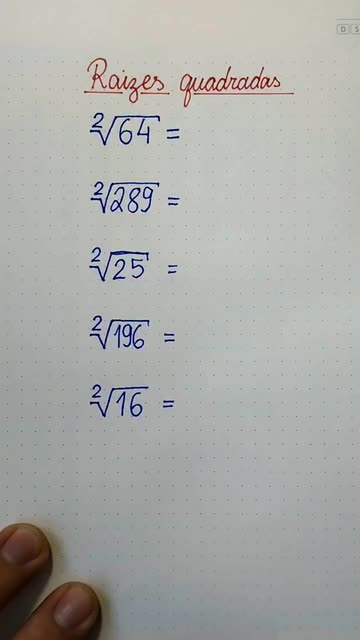 Raizes quadradas
²√64 =
²√289 =
²√25 =
²√196 =
²√16 =